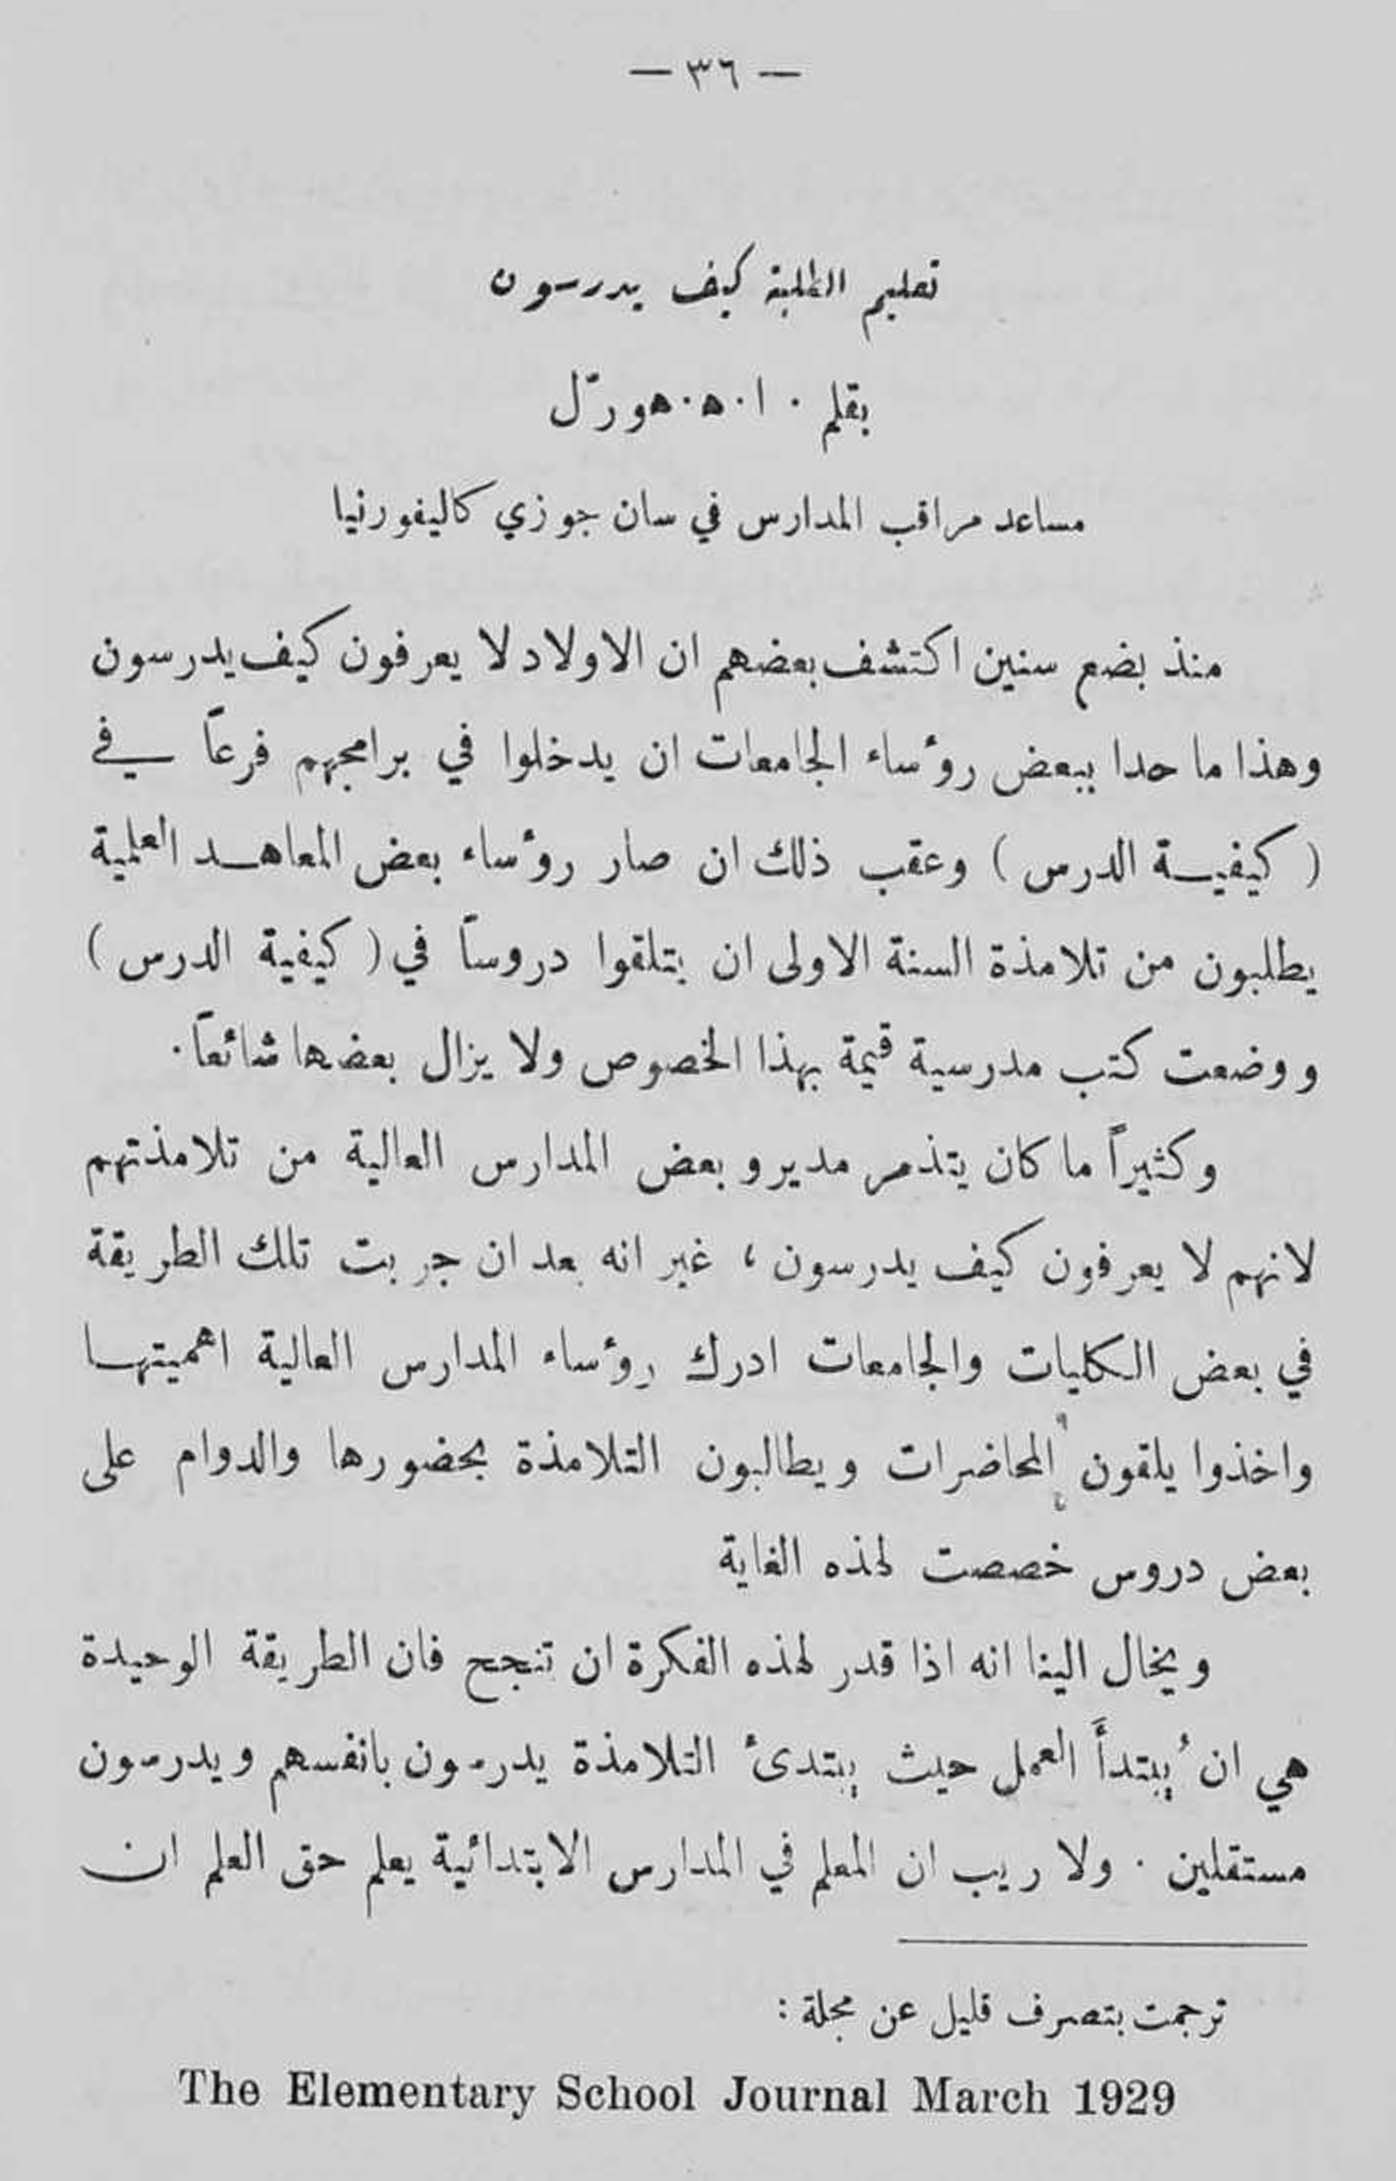 — ٣٦ —
تعليم الطلبة كيف يدرسون
بقلم ٠ ا ٠ ه ٠ هورّل
مساعد مراقب المدارس في سان جوزي كاليفورنيا
منذ بضع سنين اكتشف بعضهم ان الاولاد لا يعرفون كيف يدرسون
وهذا ما حدا ببعض روؤساء الجامعات ان يدخلوا في برامجهم فرعاً في
( كيفية الدرس ) وعقب ذلك ان صار روؤساء بعض المعاهد العلمية
يطلبون من تلامذة السنة الاولى ان يتلقوا دروساً في ( كيفية الدرس )
ووضعت كتب مدرسية قيمة بهذا الخصوص ولا يزال بعضها شائعاً ٠
وكثيراً ما كان يتذمر مديرو بعض المدارس العالية من تلامذتهم
لانهم لا يعرفون كيف يدرسون ، غير انه بعد ان جربت تلك الطريقة
في بعض الكليات والجامعات ادرك روؤساء المدارس العالية اهميتها
واخذوا يلقون المحاضرات ويطالبون التلامذة بحضورها والدوام على
بعض دروس خصصت لهذه الغاية
ويخال الينا انه اذا قدر لهذه الفكرة ان تنجح فان الطريقة الوحيدة
هي ان ُيبتدأَ العمل حيث يبتدئ التلامذة يدرسون بانفسهم ويدرسون
مستقلين ٠ ولا ريب ان المعلم في المدارس الابتدائية يعلم حق العلم ان
ترجمت بتصرف قليل عن مجلة :
The Elementary School Journal March 1929